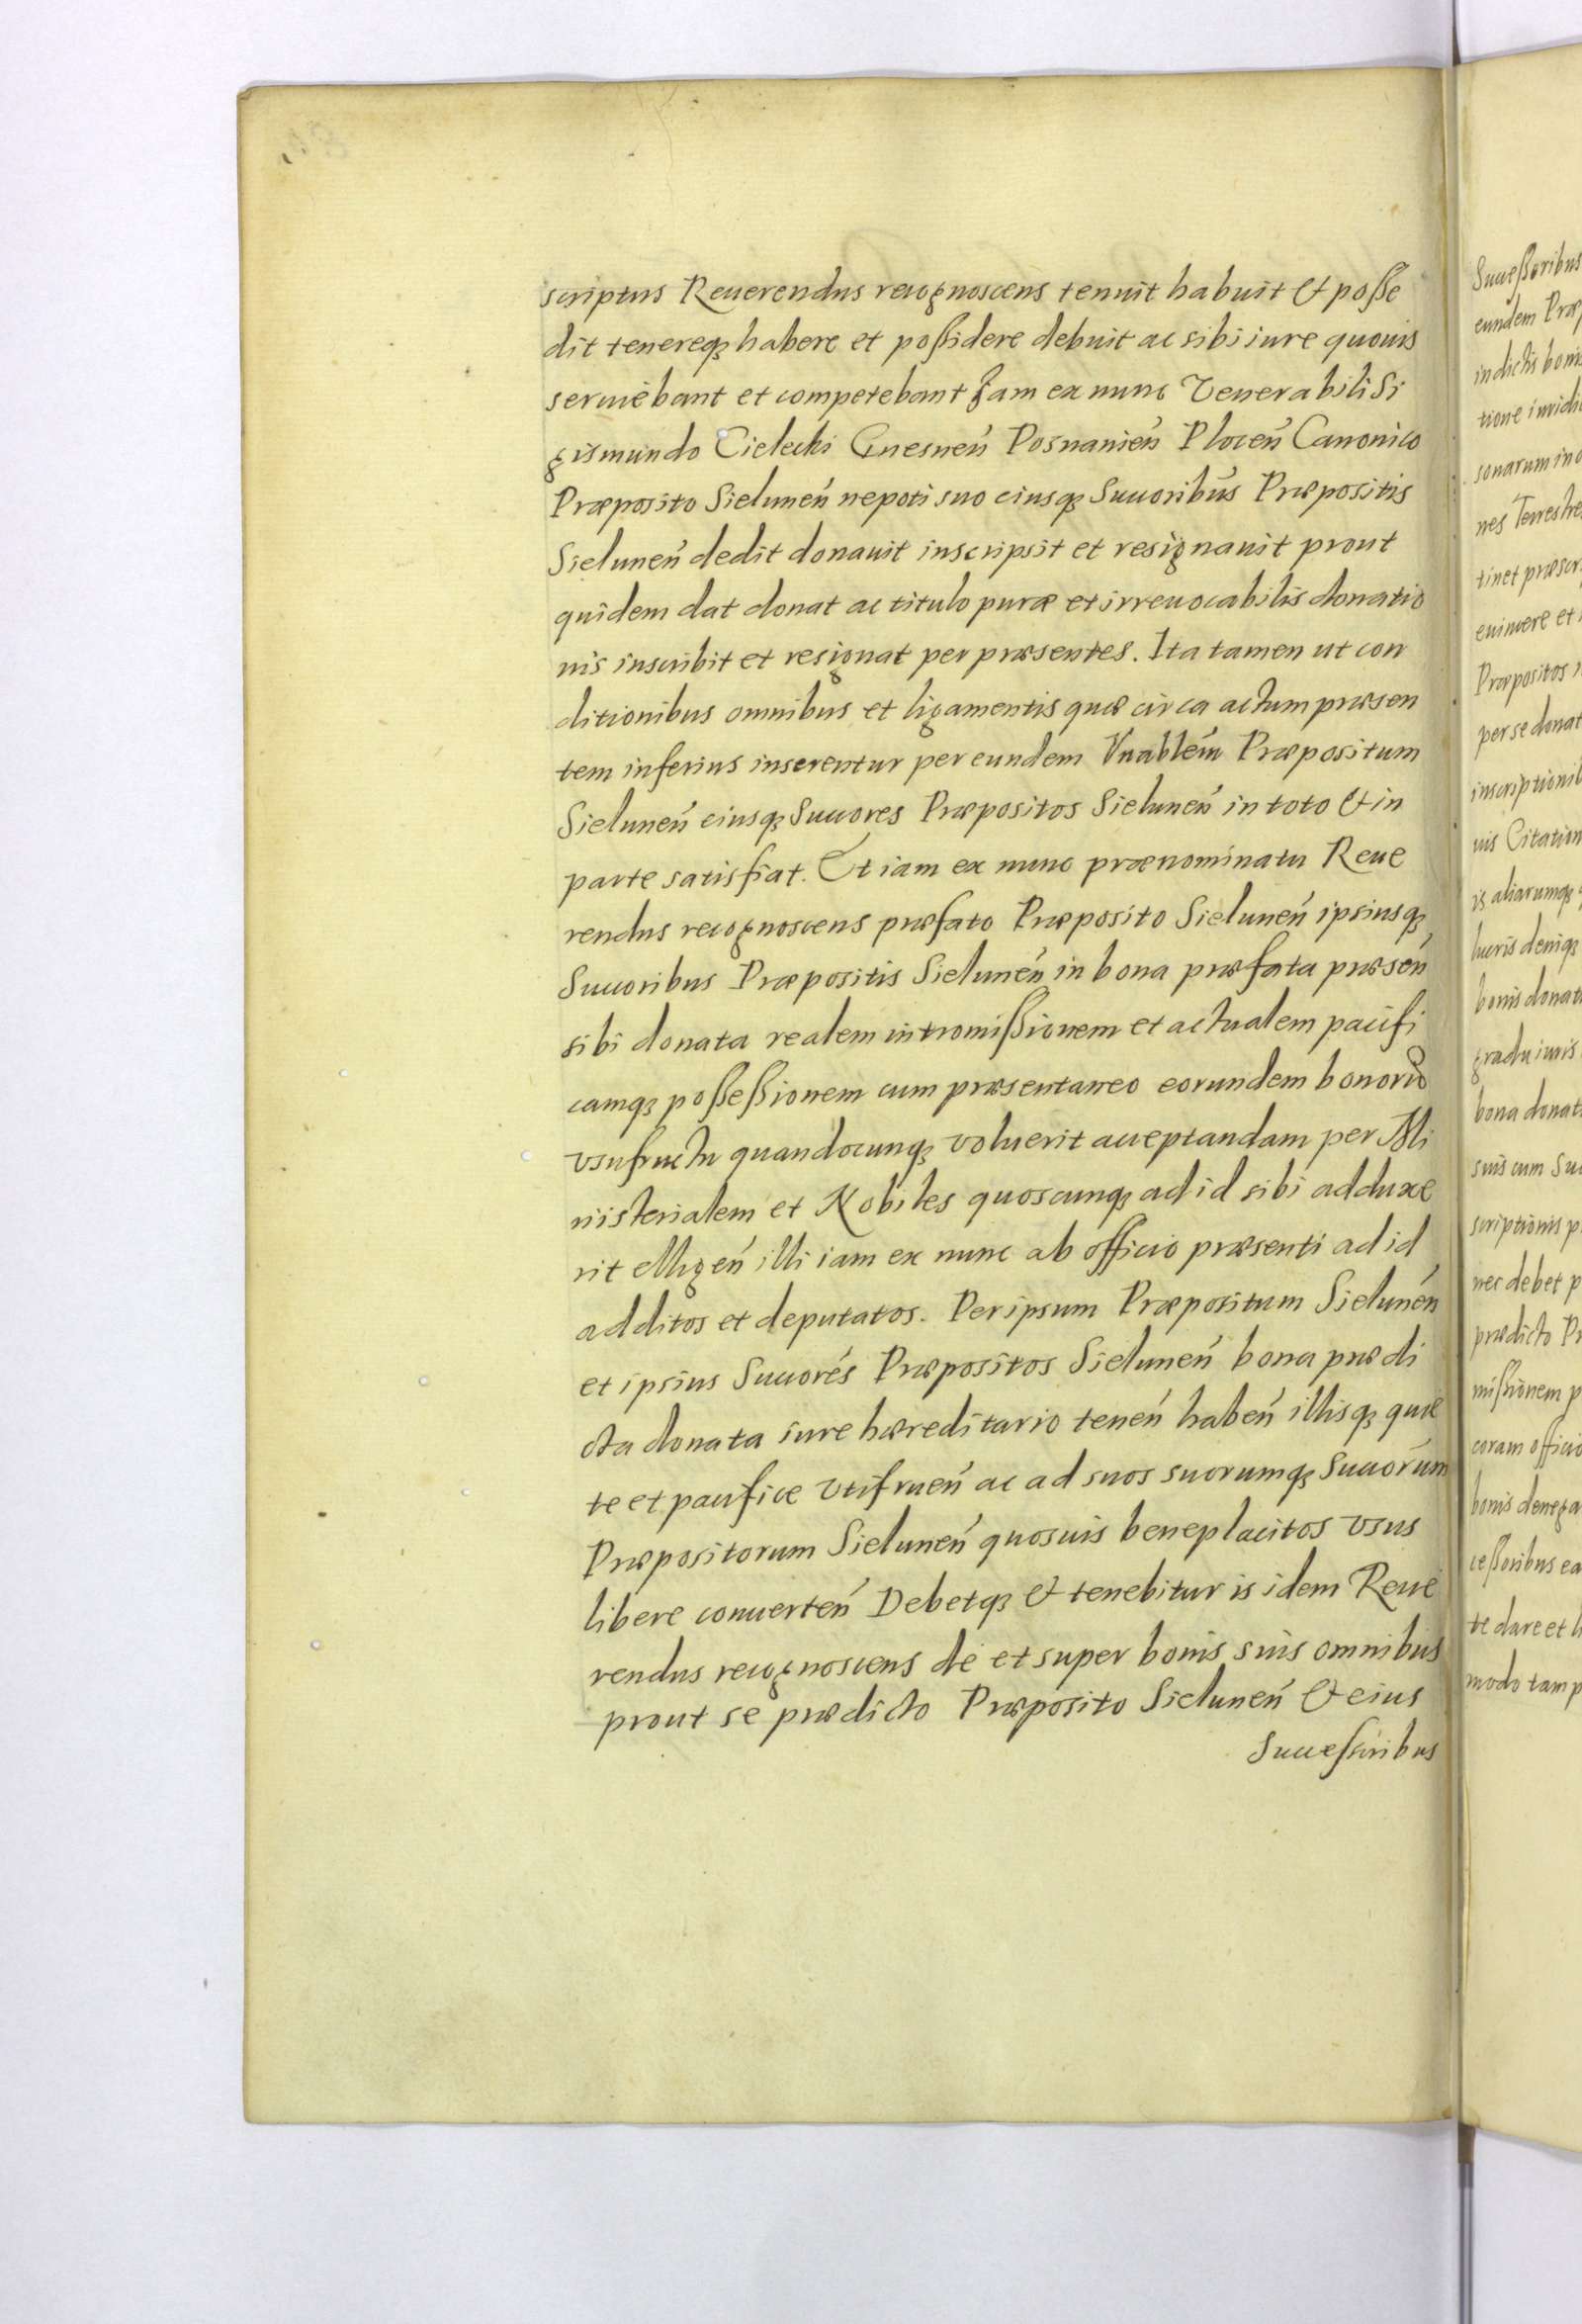 scriptus Reuerendus recognoscens tenuit habuit & posse
dit tenereqȝ habere et possidere debuit ac sibi iure quouis
seruiebant et competebant Jam ex nunc Venerabili Si
gismundo Cielecki Gnesneń Posnanień Ploceń Canonico
Præposito Sieluneń nepoti suo eiusqȝ Succoribus Præpositis
Sieluneń dedit donauit inscripsit et resignauit prout
quidem dat donat ac titulo puræ et irreuocabilis donatio
nis inscribit et resignat per præsentes. Ita tamen ut con
ditionibus omnibus et ligamentis quæ circa actum præsen
tem inferius inserentur per eundem Vnablem Præpositum
Sieluneń eiusqȝ Succores Præpositos Sieluneń in toto & in
parte satisfiat. Et iam ex nunc prænominatu Reue
rendus recognoscens præfato Præposito Sieluneń ipsiusqȝ
Succoribus Præpositis Sieluneń in bona præfata præseń
sibi donata realem intromissionem et actualem pacifi
camqȝ possessionem cum præsentaneo eorundem bonorū
vsufructu quandocunqȝ voluerit acceptandam per Mi
nisterialem et Nobiles quoscunqȝ ad id sibi adduxe
rit elligeń illi iam ex nunc ab officio præsenti ad id
additos et deputatos. Per ipsum Præpositum Sieluneń
et ipsius Succores Præpositos Sieluneń bona prædi
cta donata iure hæreditario teneń habeń illisqȝ quie
te et pacifice vtifrueń ac ad suos suorumqȝ Succorum
Præpositorum Sieluneń quosuis beneplacitos vsus
libere conuerteń Debetqȝ & tenebitur is idem Reue
rendus recognoscens de et super bonis suis omnibus
prout se prædicto Præposito Sieluneń & eius
Successoribus
Successoribus
eundem Præp
in dictis bonis
tione iuridi
sonarum in
nes Terrestre
tinet præscr
euincere et
Præpositos
per se donat
inscriptionib
uis Citation
is aliarumqȝ
lucris deniqȝ
bonis donat
gradu iuris
bona donat
suis cum Su
scriptionis p
nec debet p
prædicto Pr
missionem p
coram officio
bonis denega
cessoribus ea
te dare et h
modo tam p